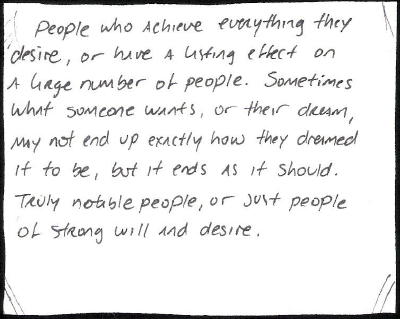 People who achieve everything they
desire, or have a lasting effect on
a large number of people. Sometimes
what someone wants, or their dream,
may not end up exactly how they dreamed
it to be, but it ends as it should.
Truly notable people, or just people
of strong will and desire.